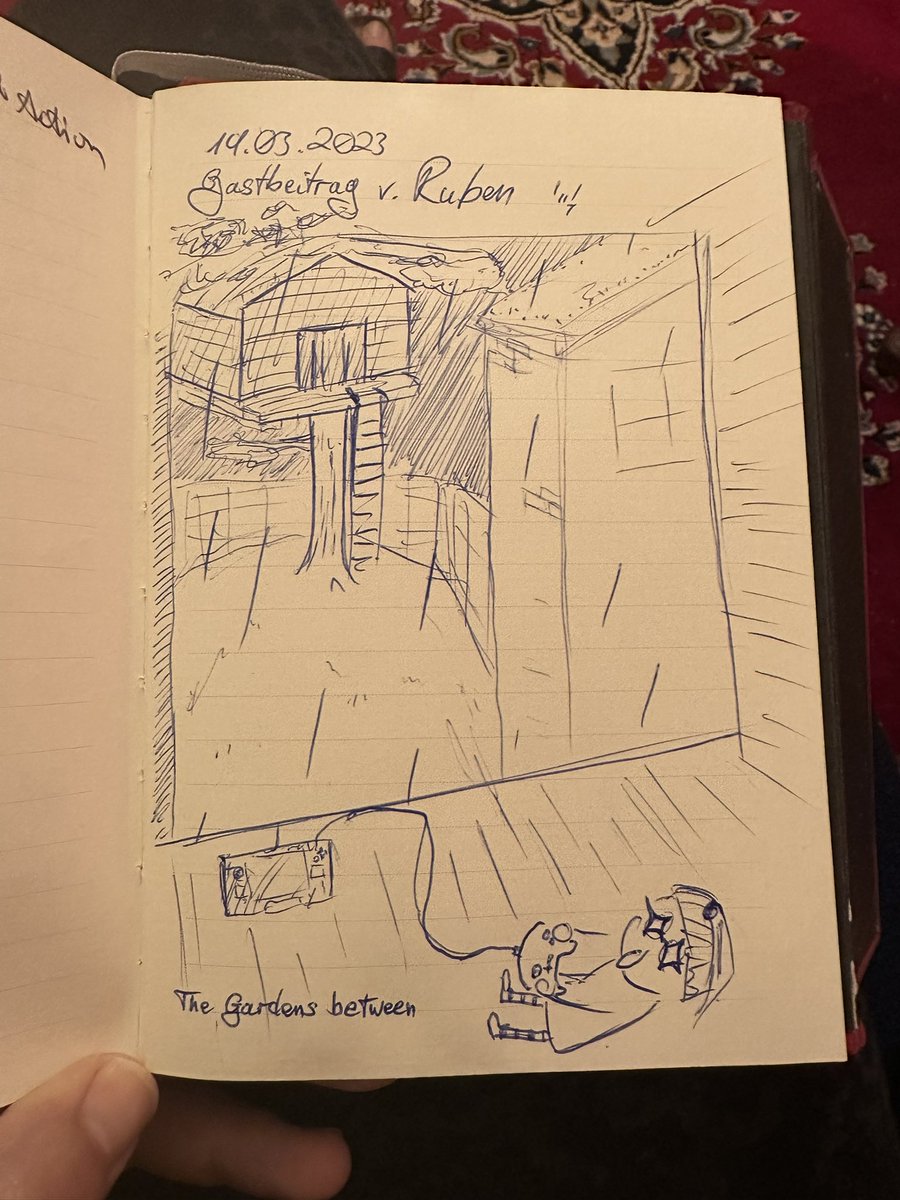 Action
19.03.2023
Gastbeitrag v. Ruben
The Gardens between